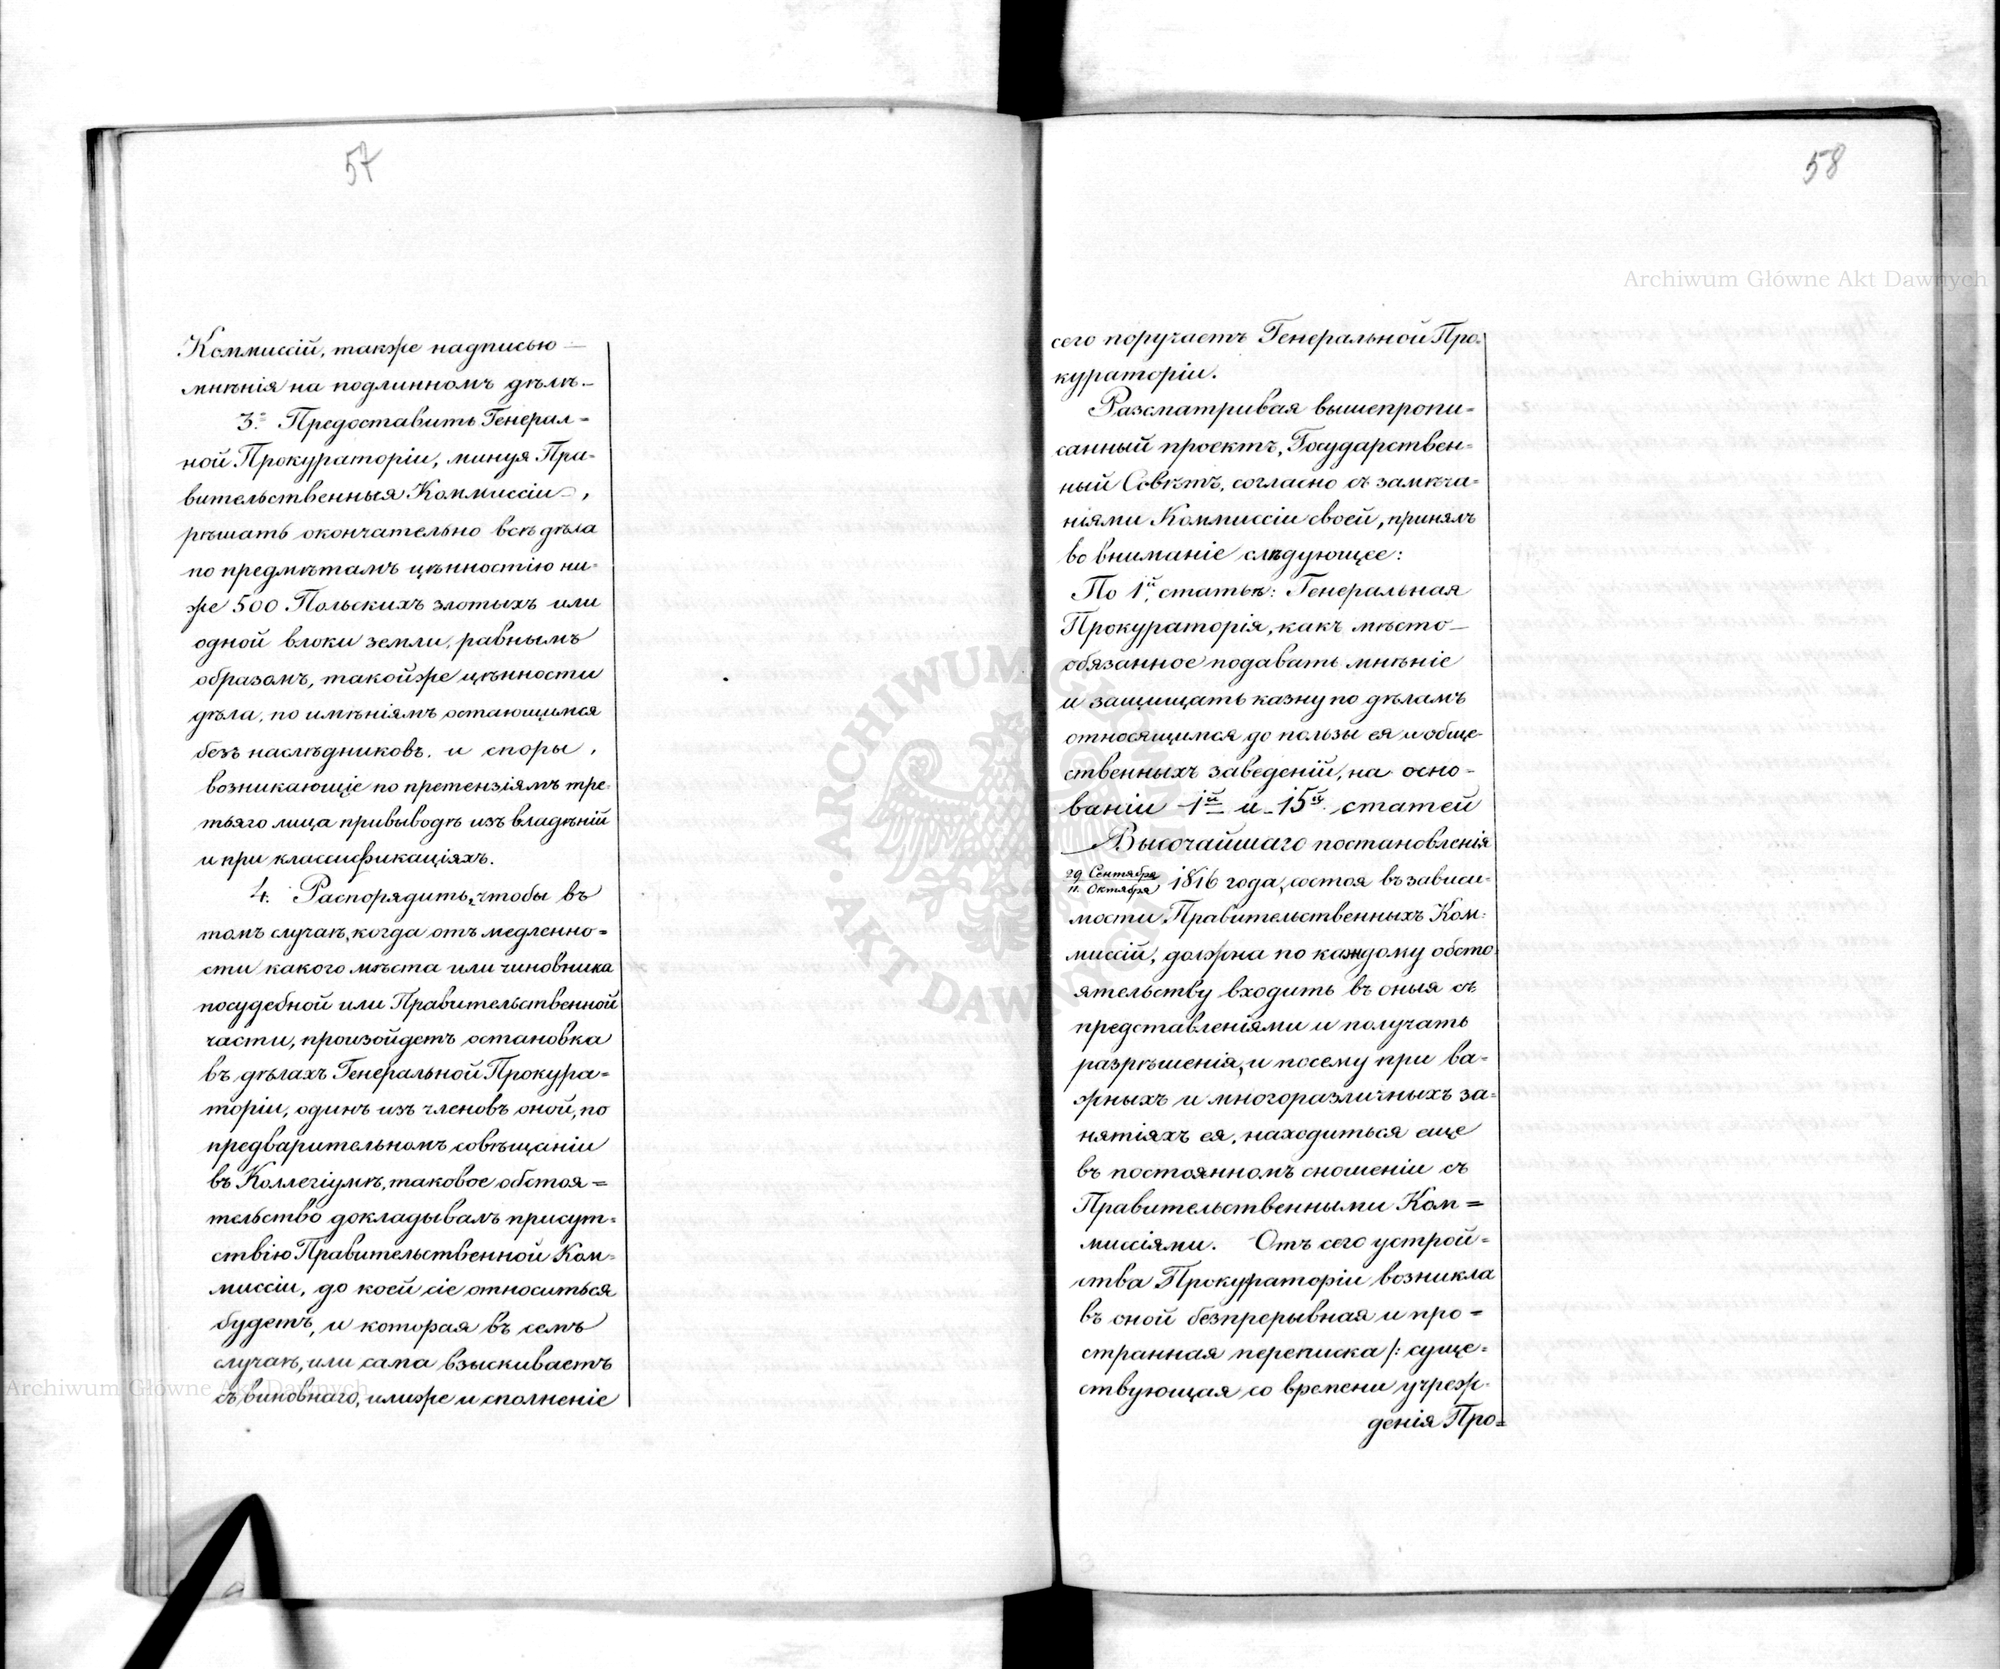 57
Коммиссій, также надписью —
мнѣнія на подлинномъ дѣлѣ. –
3. Предоставить Генерал=
ной Прокураторіи, минуя Пра-
вительственныя Коммиссіи –,
рѣшать окончательно всѣ дѣла
по предмѣтамъ цѣнностію ни-
же 500 Польскихъ злотыхъ или
одной влоки земли, равнымъ
образомъ, такой же цѣнности
дѣла, по имѣніямъ остающимся
безъ наслѣдниковъ. и споры,
возникающіе по претензіямъ тре-
тьяго лица при выводѣ изъ владѣній
и при классификаціяхъ.
4. Распорядить, чтобы въ
томъ случаѣ, когда отъ медленно=
сти какого мѣста или чиновника
по судебной или Правительственной
части, произойдетъ остановка
въ дѣлахъ Генеральной Прокура=
торіи, одинъ изъ членовъ оной, по
предварительномъ совѣщаніи
въ Коллегіумѣ, таковое обстоя=
тельство докладывалъ присут-
ствію Правительственной Ком-
миссіи, до коей сіе относиться
будетъ, и которая въ семъ
случаѣ, или сама взыскиваетъ
съ виновнаго, или же исполненіе
58
сего поручаетъ Генеральной Про-
кураторіи.
Разсматривая вышепропи-
санный проектъ, Государствен-
ный Совѣтъ, согласно съ замѣча-
ніями Коммиссіи своей, принялъ
во вниманіе слѣдующее:
По 1й статьѣ: Генеральная
Прокураторія, какъ мѣсто —
обязанное подавать мнѣніе
и защищать казну по дѣламъ
относящимся до пользы ея и обще-
ственныхъ заведеній, на осно-
ваніи 1й и 15й статей
Высочайшаго постановленія
29 Сентября
11 Октября 1816 года, состоя въ зависи-
мости Правительственныхъ Ком-
миссій, должна по каждому обсто-
ятельству входить въ оныя съ
представленіями и получать
разрѣшенія, и посему при ва-
жныхъ и многоразличныхъ за-
нятіяхъ ея, находиться еще
въ постоянномъ сношеніи съ
Правительственными Ком=
миссіями. Отъ сего устрой-
ства Прокураторіи возникла
въ оной безпрерывная и про=
странная переписка /: суще-
ствующая со времени учреж-
денія Про=
Archiwum Główne Akt Dawnych
Archiwum Główne Akt Dawnych
ARCHIWUM GŁÓWNE
AKT DAWNYCH